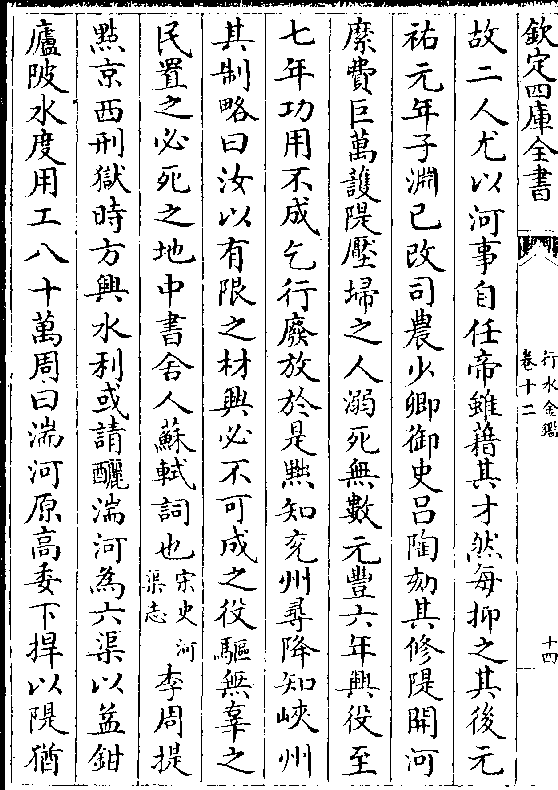 欽定四庫全書
行水金鑑
卷十二
十四
故二人尤以河事自任帝雖藉其才然每抑之其後元
祐元年子淵已改司農少卿御史呂陶劾其修隄開河
縻費巨萬護隄壓埽之人溺死無數元豐六年興役至
七年功用不成乞行廢放於是黜知兖州尋降知峽州
其制略曰汝以有限之材興必不可成之役驅無辜之
民置之必死之地中書舍人蘇軾詞也宋史河渠志李周提
點京西刑獄時方興水利或請釃湍河為六渠以益鉗
廬陂水度用工八十萬周曰湍河原高委下捍以隄猶